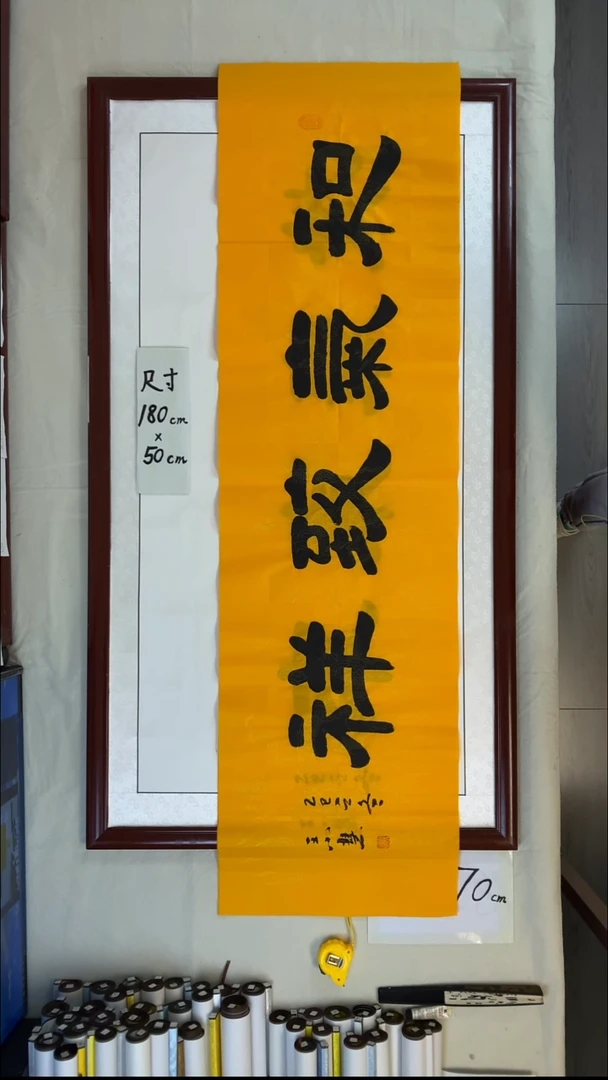 和氣致祥
乙巳
王小
尺寸
180cm
×
50cm
70cm